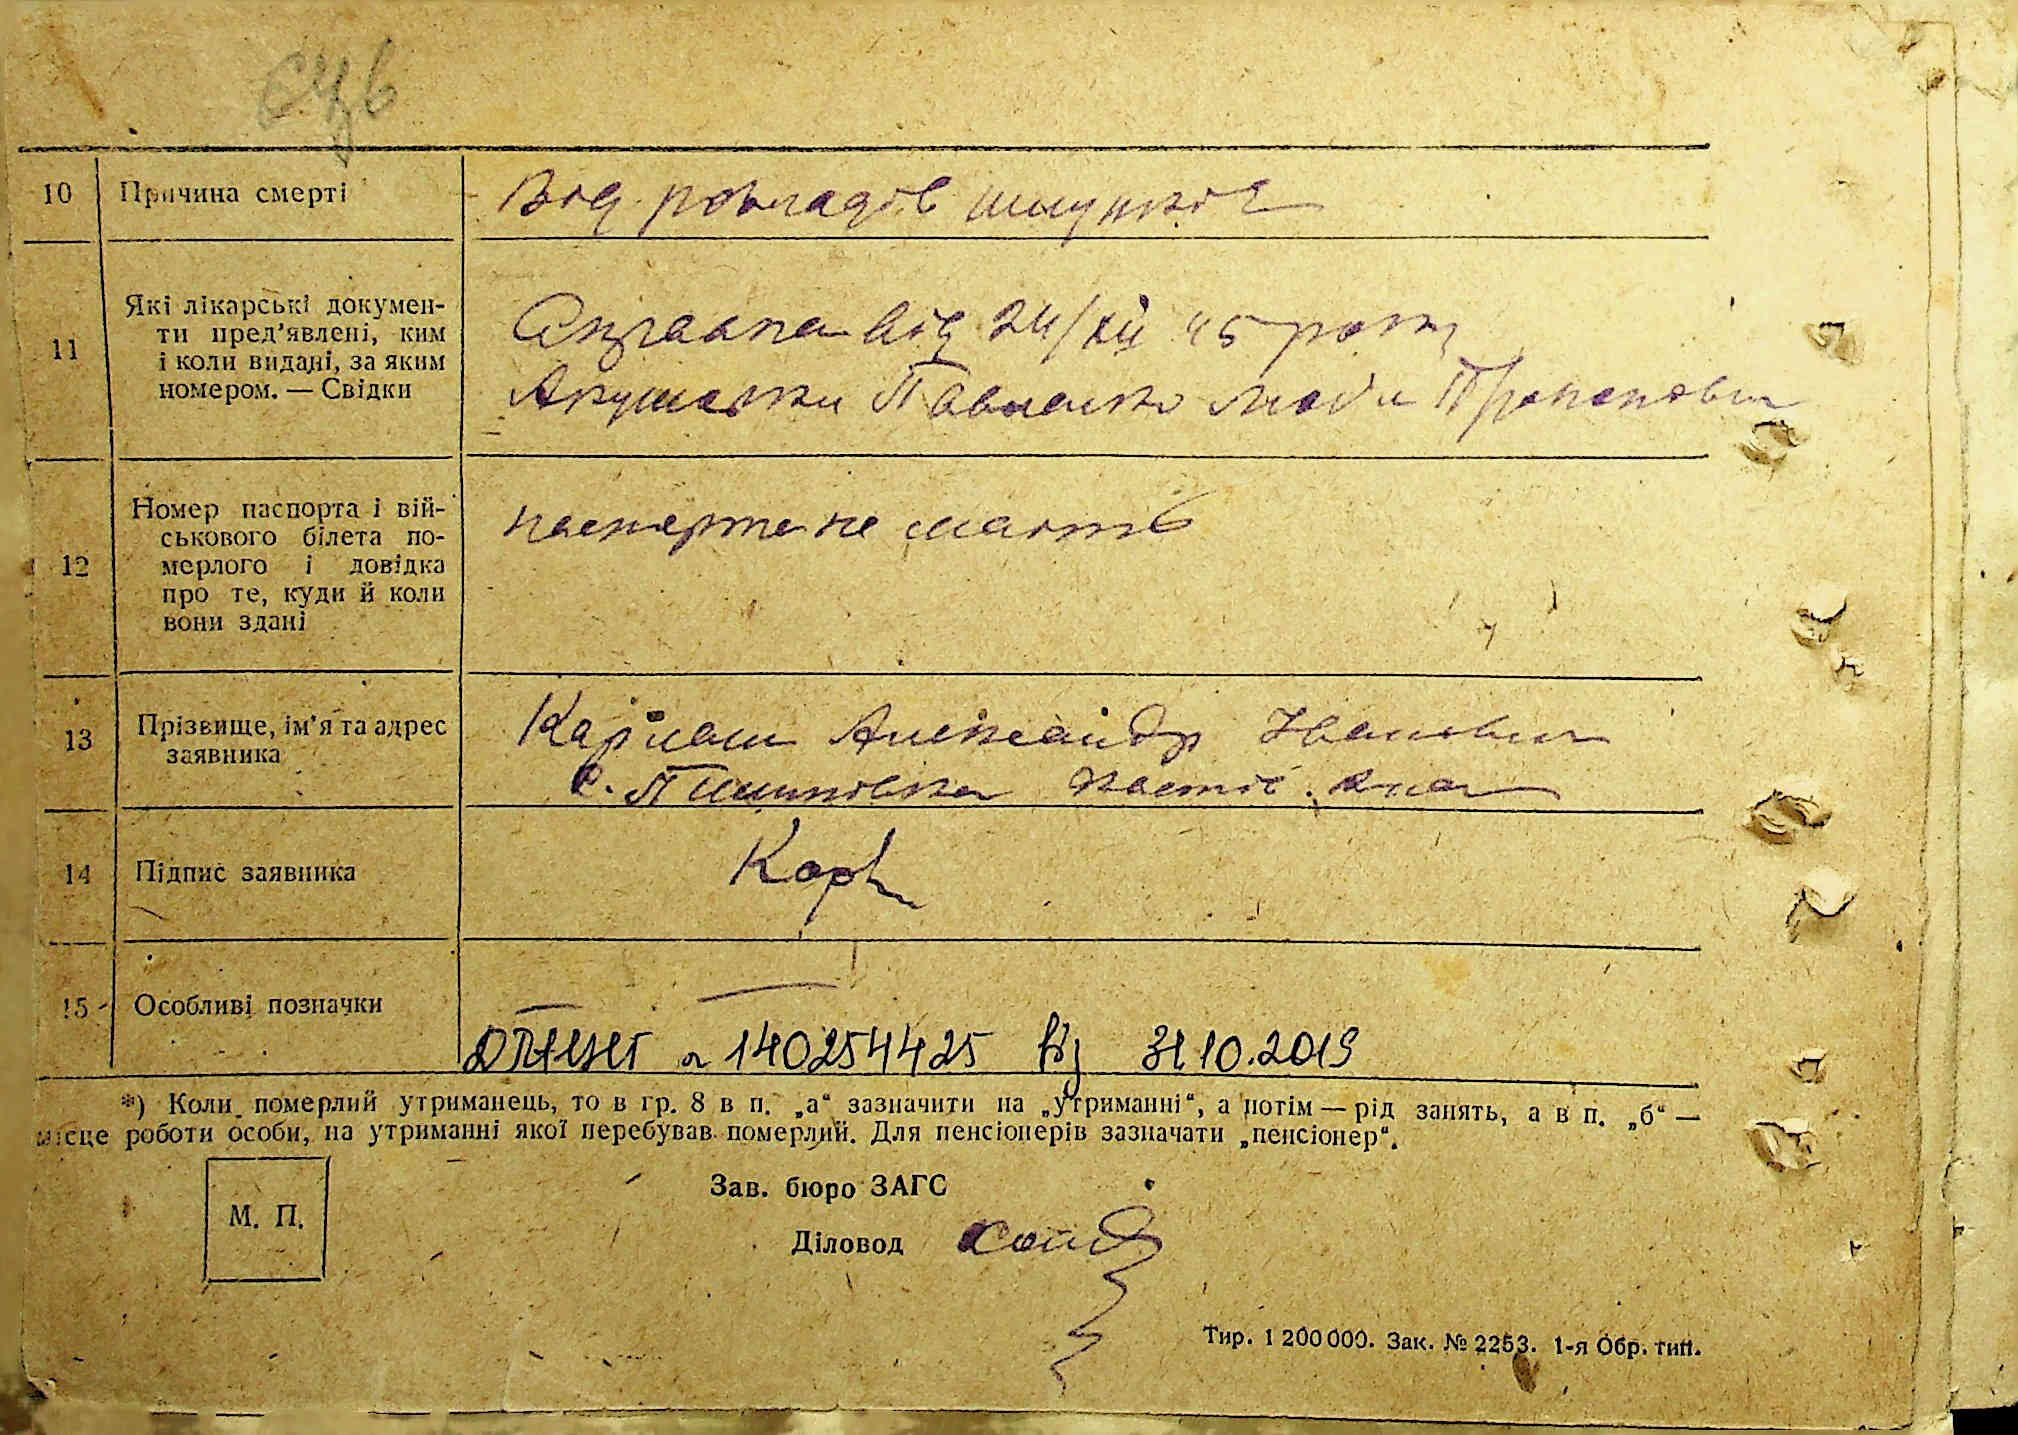 10 Причина смерті
Від розладів шлунків
11 Які лікарські докумен-
ти пред’явлені, ким
і коли видані, за яким
номером. — Свідки
від 24/XII 45 року
Акушерки Павленко
12 Номер паспорта і вій-
ськового білета по-
мерлого і довідка
про те, куди й коли
вони здані
паспорта не
13 Прізвище, ім’я та адрес
заявника
Александр Іванович
с.
14 Підпис заявника
Кар
15 Особливі позначки
140254425 від 31.10.2019
*) Коли померлий утриманець, то в гр. 8 в п. „а“ зазначити на „утриманні“, а потім — рід занять, а в п. „б“ —
місце роботи особи, на утриманні якої перебував померлий. Для пенсіонерів зазначати „пенсіонер“.
М. П.
Зав. бюро ЗАГС
Діловод
Тир. 1 200 000. Зак. № 2253. 1-я Обр. тип.